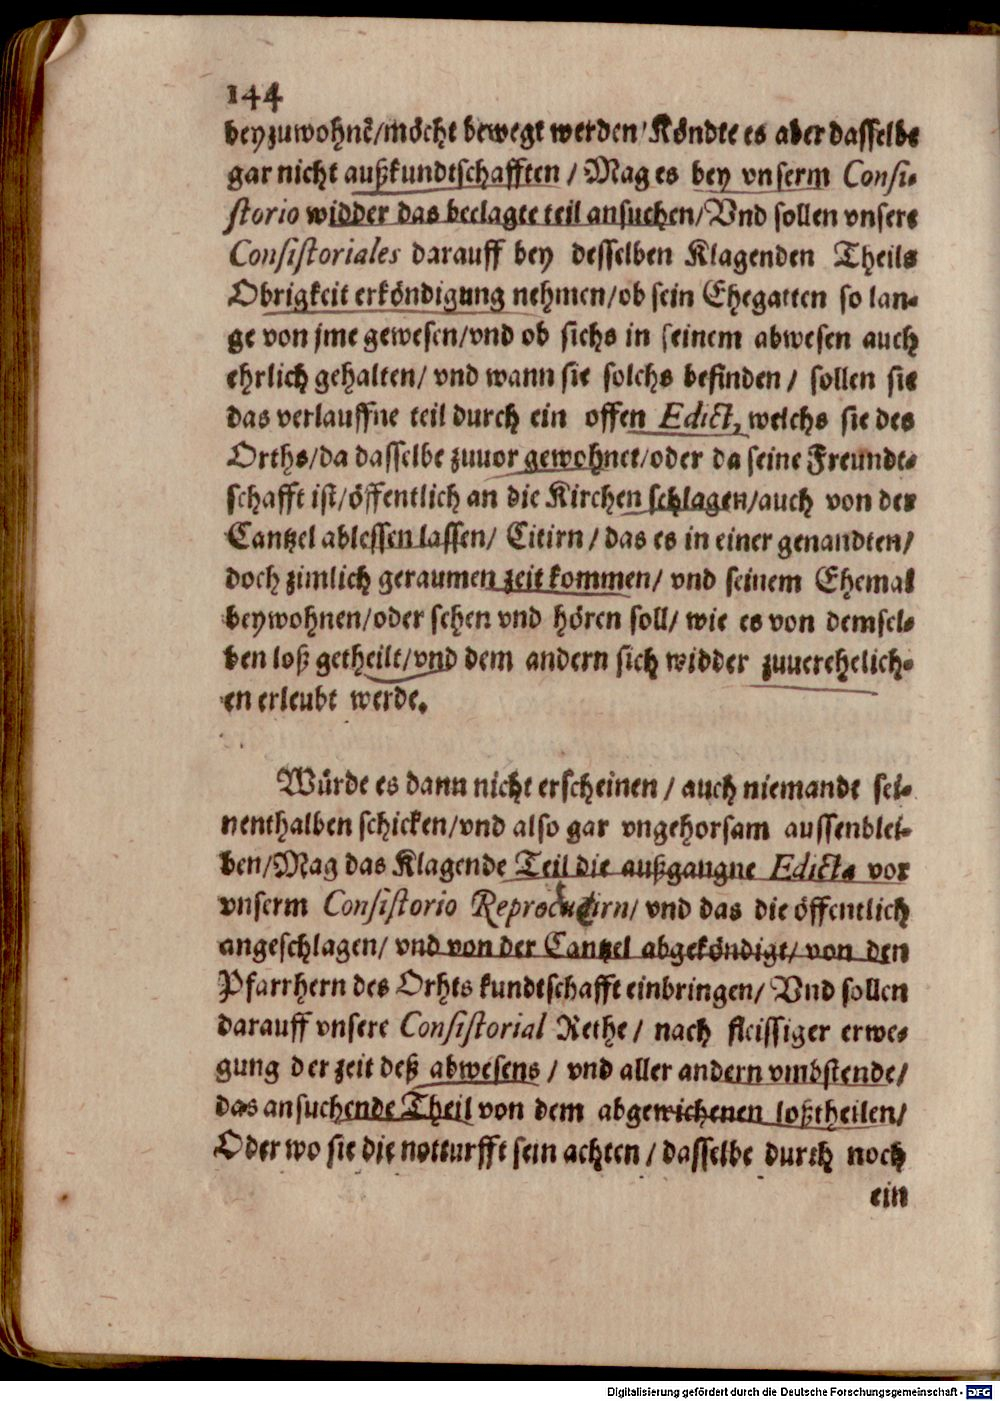 144
beyzuwohnẽ/möcht bewegt werden / Köndte es aber dasselbe
gar nicht außkundtschafften / Mag es bey vnserm Consi-
storio widder das beclagte teil ansuchen/ Vnd sollen vnsere
Consistoriales darauff bey desselben Klagenden Theils
Obrigkeit erköndigung nehmen/ob sein Ehegatten so lan-
ge von jme gewesen/vnd ob sichs in seinem abwesen auch
ehrlich gehalten/ vnd wann sie solchs befinden / sollen sie
das verlauffne teil durch ein offen Edict, welchs sie des
Orths/da dasselbe zuuor gewohnet/oder da seine Freundt-
schafft ist/öffentlich an die Kirchen schlagen/auch von der
Cantzel ablessen lassen/ Citirn / das es in einer genandten/
doch zimlich geraumen zeit kommen/ vnd seinem Ehemal
beywohnen/oder sehen vnd hören soll/ wie es von demsel-
ben loß getheilt/vnd dem andern sich widder zuuerehelich-
en erleubt werde.
Würde es dann nicht erscheinen / auch niemandt sei-
nenthalben schicken/vnd also gar vngehorsam aussenblei-
ben/Mag das Klagende Teil die außgangne Edicta vor
vnserm Consistorio Reproducirn/ vnd das die öffentlich
angeschlagen/ vnd von der Cantzel abgeköndigt/ von den
Pfarrhern des Orhts kundtschafft einbringen/ Vnd sollen
darauff vnsere Consistorial Rethe / nach fleissiger erwe-
gung der zeit deß abwesens / vnd aller andern vmbstende/
das ansuchende Theil von dem abgewichenen loßtheilen/
Oder wo sie die notturfft sein achten / dasselbe durch noch
ein
Digitalisierung gefördert durch die Deutsche Forschungsgemeinschaft - DFG